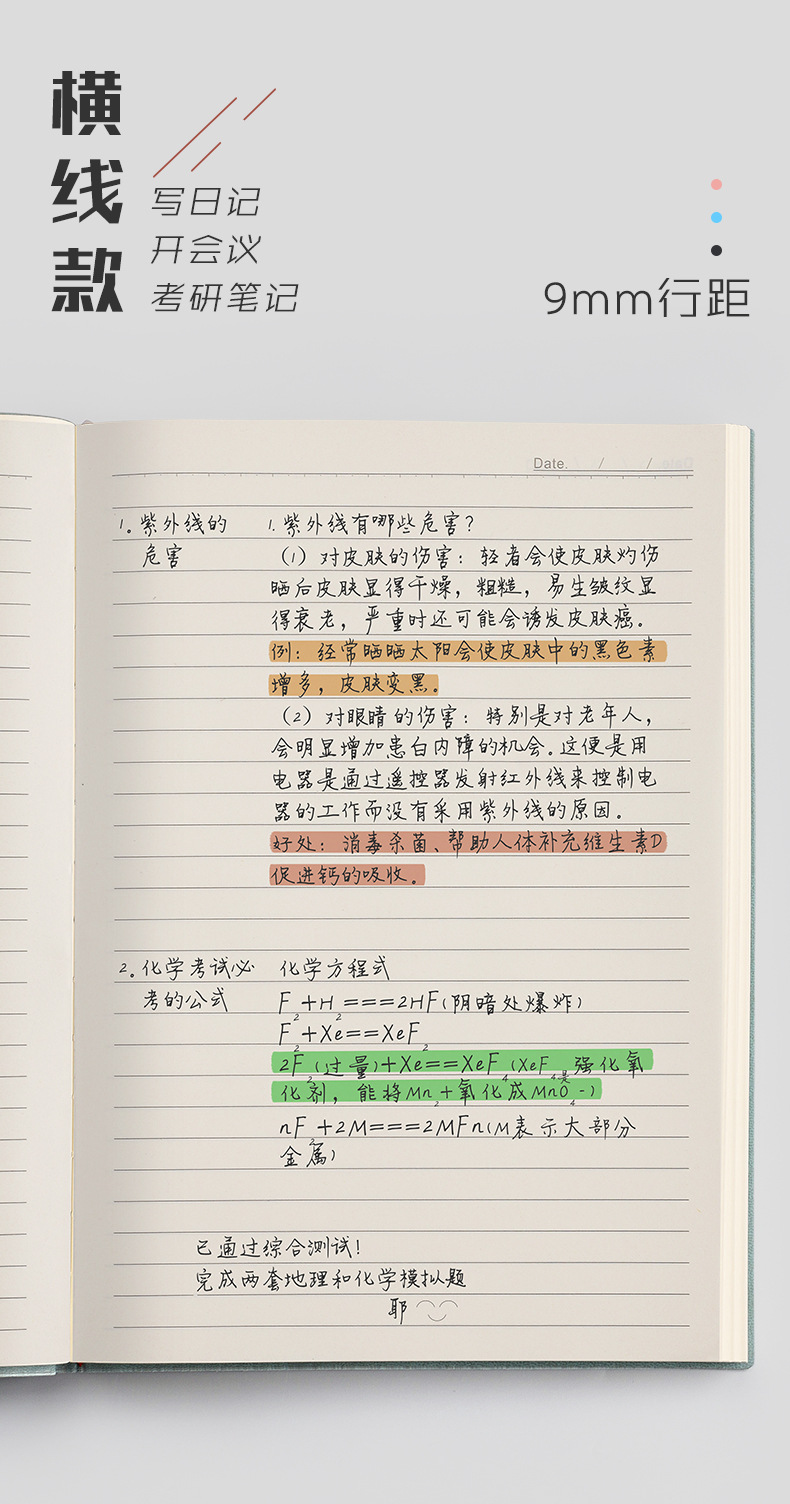 横线款
写日记
开会议
考研笔记
9mm行距
Date. / /
1。紫外线的
危害
1.紫外线有哪些危害？
（1）对皮肤的伤害：轻者会使皮肤灼伤
晒后皮肤显得干燥，粗糙，易生皱纹显
得衰老，严重时还可能会诱发皮肤癌。
例：经常晒晒太阳会使皮肤中的黑色素
增多，皮肤变黑。
（2）对眼睛的伤害：特别是对老年人，
会明显增加患白内障的机会.这便是用
电器是通过遥控器发射红外线来控制电
器的工作而没有采用紫外线的原因。
好处：消毒杀菌、帮助人体补充维生素D
促进钙的吸收。
2。化学考试必
考的公式
化学方程式
F₂+H₂===2HF(阴暗处爆炸)
F₂+Xe==XeF₂
2F₂(过量)+Xe==XeF₄(XeF₄是强氧化
化剂，能将Mn₂+氧化成MnO₄-)
nF₂+2M===2MFn(M表示大部分
金属)
已通过综合测试！
完成两套地理和化学模拟题
耶